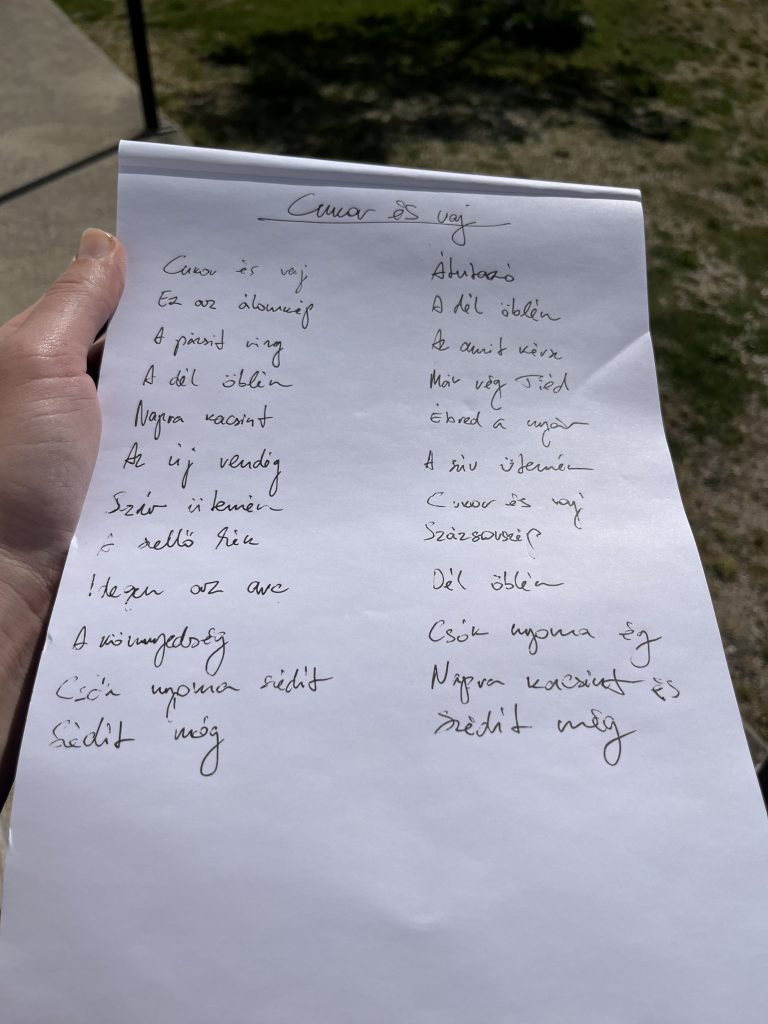 Cukor és vaj
Cukor és vaj
Ez az álomkép
A pázsit ring
A dél öblén
Napra kacsint
Az új vendég
Szív ütemén
A szellő kék
Idegen az arc
A könnyedség
Csók nyoma szédít
Szédít még
Átutazó
A dél öblén
Az amit kérsz
Már rég Tiéd
Ébred a nyár
A szív ütemén
Cukor és vaj
Százszorszép
Dél öblén
Csók nyoma ég
Napra kacsint és
Szédít még